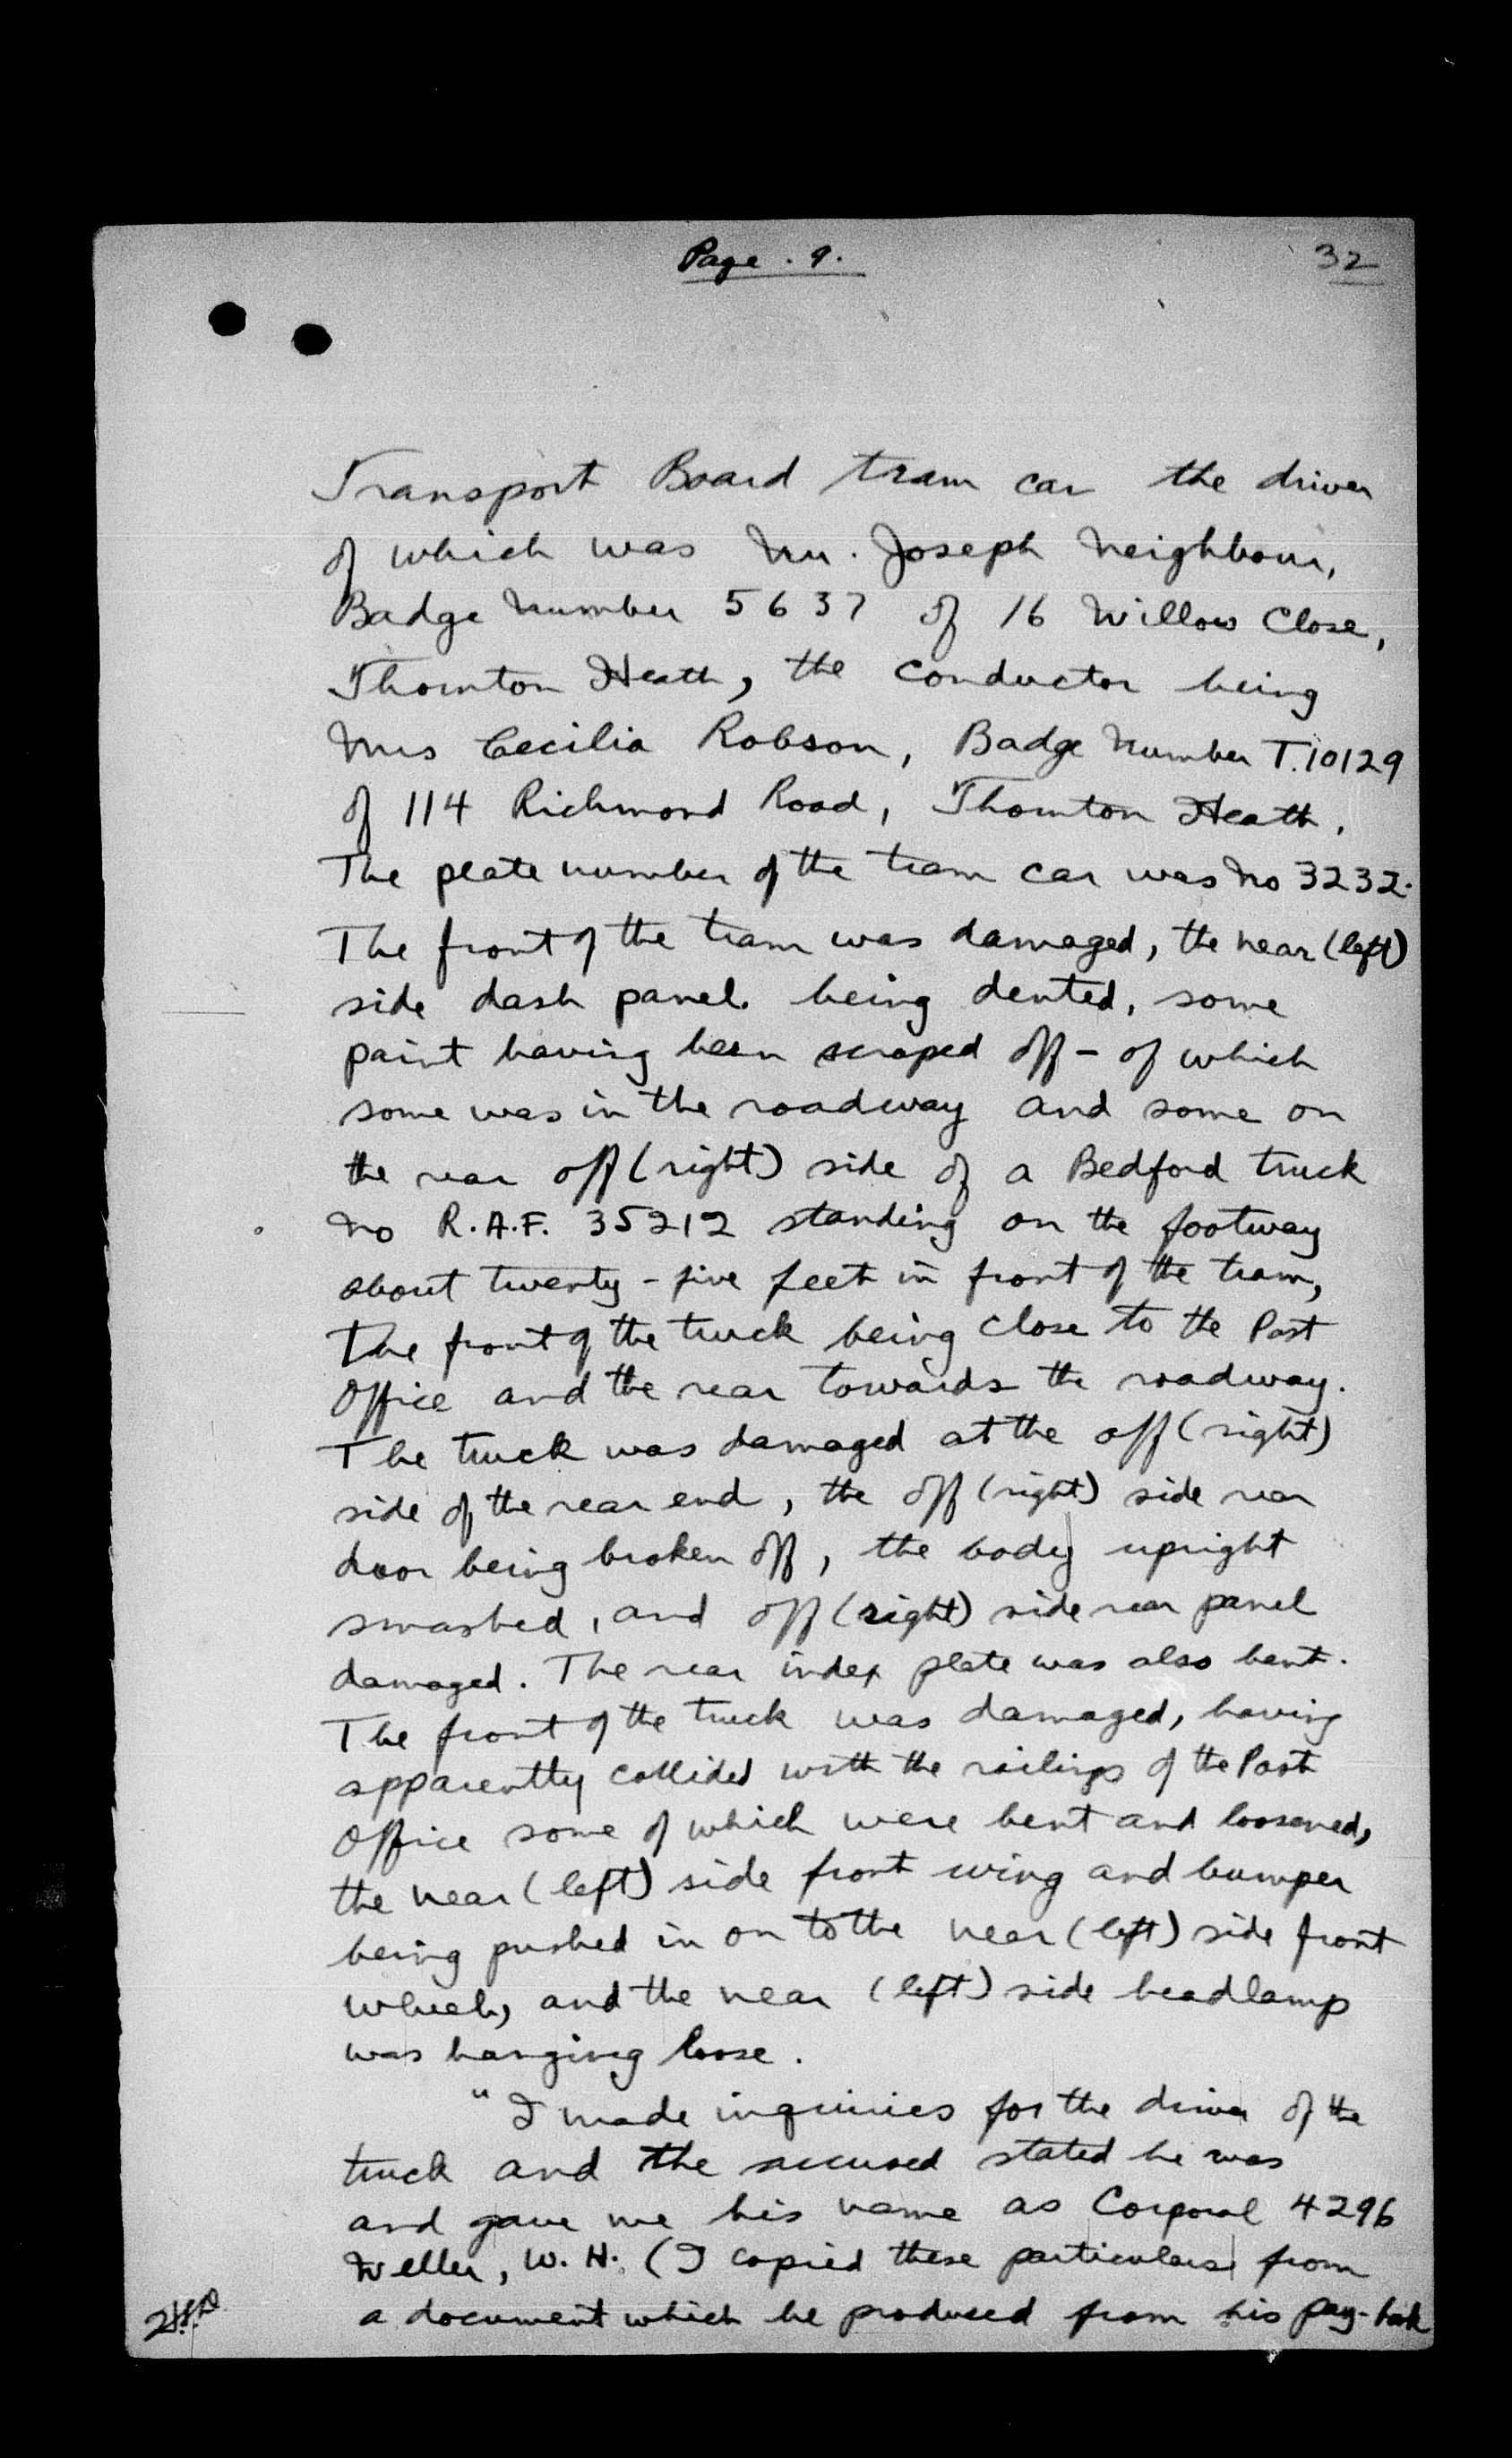 Page . 9.
32
Transport Board tram car the driver
of which was Mr. Joseph Neighbour,
Badge Number 5637 of 16 Willow Close,
Thornton Heath, the conductor being
Mrs Cecilia Robson, Badge Number T.10129
of 114 Richmond Road, Thornton Heath.
The plate number of the tram car was No 3232.
The front of the tram was damaged, the near (left)
side dash panel being dented, some
paint having been scraped off - of which
some was in the roadway and some on
the rear off (right) side of a Bedford truck
No R.A.F. 35212 standing on the footway
about twenty-five feet in front of the tram,
the front of the truck being close to the Post
Office and the rear towards the roadway.
The truck was damaged at the off (right)
side of the rear end, the off (right) side rear
door being broken off, the body upright
smashed, and off (right) side rear panel
damaged. The rear index plate was also bent.
The front of the truck was damaged, having
apparently collided with the railings of the Post
Office some of which were bent and loosened,
the near (left) side front wing and bumper
being pushed in on to the near (left) side front
wheel, and the near (left) side headlamp
was hanging loose.
"I made inquiries for the driver of the
truck and the accused stated he was
and gave me his name as Corporal 4296
Weller, W. H. (I copied these particulars from
a document which he produced from his pay-book